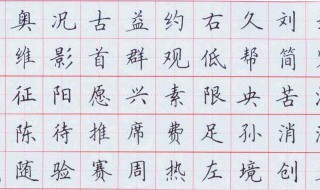 奥况古益约右久刘
维影首群观低帮简
征阳愿兴素限央苦消
陈待推席费足孙消
随验赛周热左境创